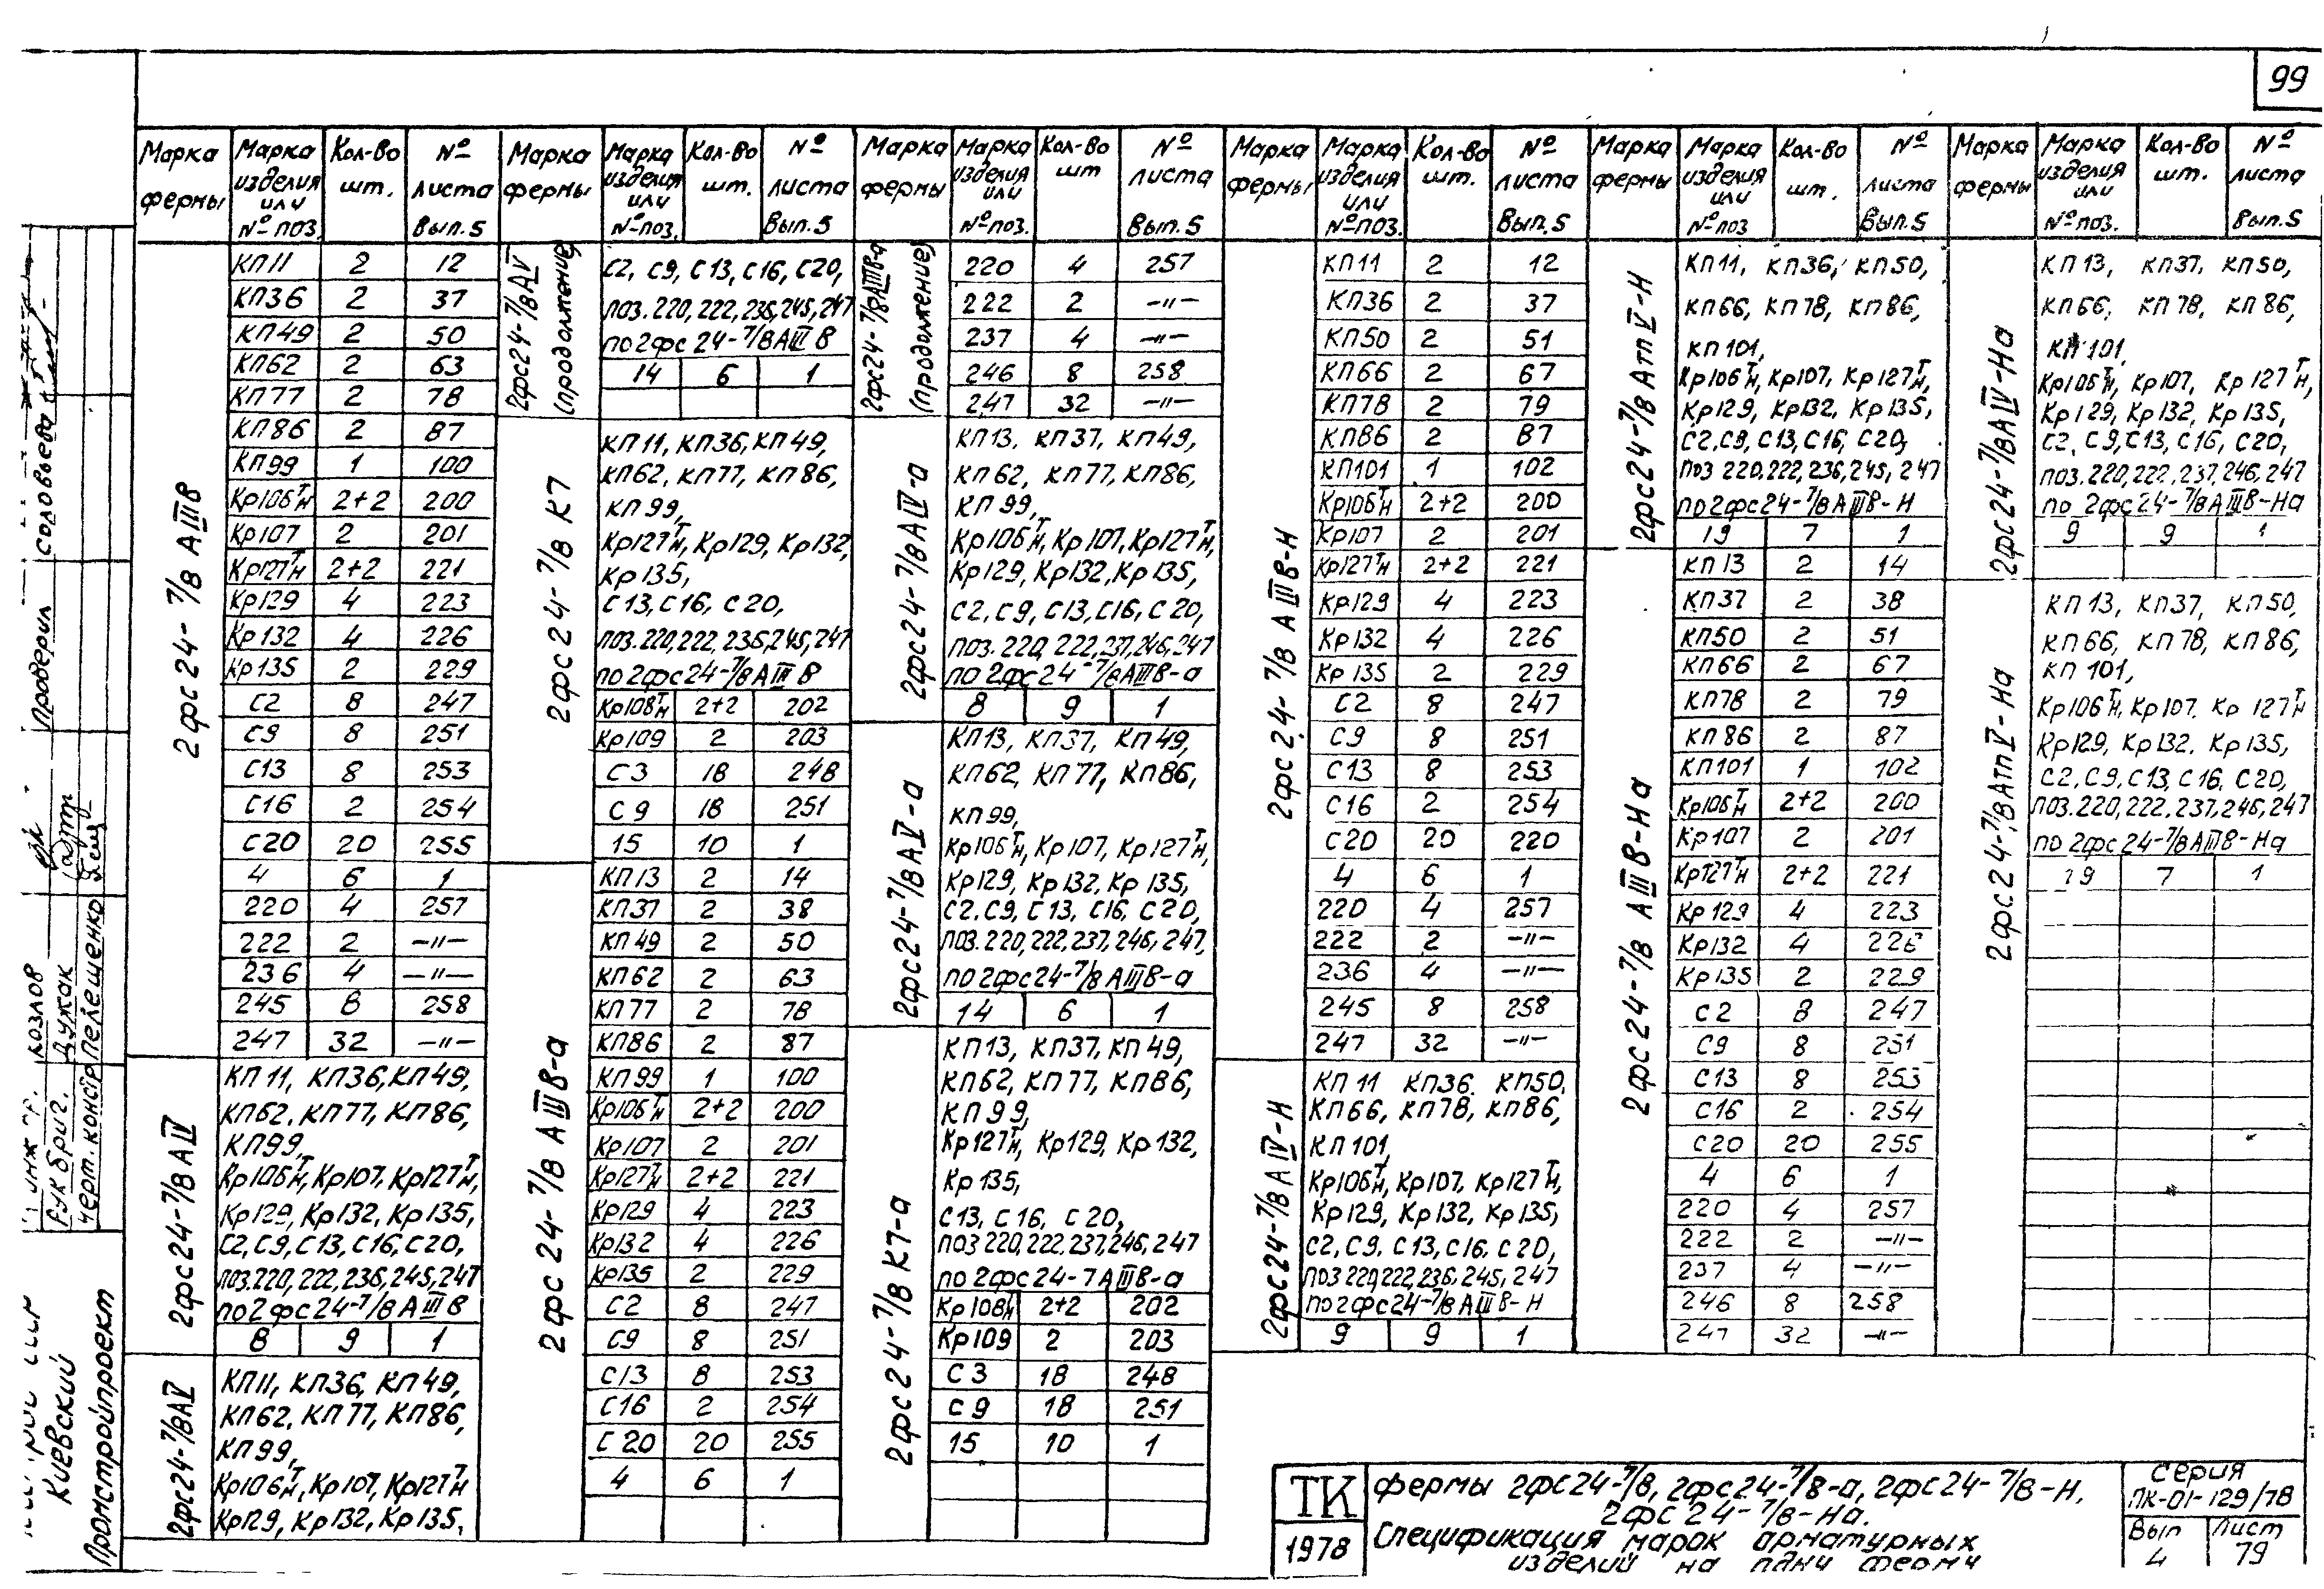 99
Марка фермы | Марка изделия или № поз. | Кол-во шт. | № листа Вып. 5
2фс24-7/8 АIIIв
КП11 2 12
КП36 2 37
КП49 2 50
КП62 2 63
КП77 2 78
КП86 2 87
КП99 1 100
Кр106Т/Н 2+2 200
Кр107 2 201
Кр127Т/Н 2+2 221
Кр129 4 223
Кр132 4 226
Кр135 2 229
С2 8 247
С9 8 251
С13 8 253
С16 2 254
С20 20 255
4 6 1
220 4 257
222 2 —"—
236 4 —"—
245 8 258
247 32 —"—
2фс24-7/8АIV
КП11, КП36, КП49,
КП62, КП77, КП86,
КП99,
Кр106Т/Н, Кр107, Кр127Т/Н,
Кр129, Кр132, Кр135,
С2, С9, С13, С16, С20,
поз.220,222,236,245,247
по 2фс24-7/8АIIIв
8 9 1
2фс24-7/8АV
КП11, КП36, КП49,
КП62, КП77, КП86,
КП99,
Кр106Т/Н, Кр107, Кр127Т/Н
Кр129, Кр132, Кр135,
Марка фермы | Марка изделия или № поз. | Кол-во шт. | № листа Вып. 5
2фс24-7/8АV (продолжение)
С2, С9, С13, С16, С20,
поз.220,222,236,245,247
по 2фс24-7/8АIIIв
14 6 1
2фс24-7/8 К7
КП11, КП36, КП49,
КП62, КП77, КП86,
КП99,
Кр127Т/Н, Кр129, Кр132,
Кр135,
С13, С16, С20,
поз.220,222,236,245,247
по 2фс24-7/8АIIIв
Кр108Т/Н 2+2 202
Кр109 2 203
С3 18 248
С9 18 251
15 10 1
2фс24-7/8 АIIIв-а
КП13 2 14
КП37 2 38
КП49 2 50
КП62 2 63
КП77 2 78
КП86 2 87
КП99 1 100
Кр106Т/Н 2+2 200
Кр107 2 201
Кр127Т/Н 2+2 221
Кр129 4 223
Кр132 4 226
Кр135 2 229
С2 8 247
С9 8 251
С13 8 253
С16 2 254
С20 20 255
4 6 1
Марка фермы | Марка изделия или № поз. | Кол-во шт | № листа Вып. 5
2фс24-7/8АIIIв-а (продолжение)
220 4 257
222 2 —"—
237 4 —"—
246 8 258
247 32 —"—
2фс24-7/8АIV-а
КП13, КП37, КП49,
КП62, КП77, КП86,
КП99,
Кр106Т/Н, Кр107, Кр127Т/Н,
Кр129, Кр132, Кр135,
С2, С9, С13, С16, С20,
поз.220,222,237,246,247
по 2фс24-7/8АIIIв-а
8 9 1
2фс24-7/8АV-а
КП13, КП37, КП49,
КП62, КП77, КП86,
КП99,
Кр106Т/Н, Кр107, Кр127Т/Н,
Кр129, Кр132, Кр135,
С2, С9, С13, С16, С20,
поз.220,222,237,246,247,
по 2фс24-7/8АIIIв-а
14 6 1
2фс24-7/8 К7-а
КП13, КП37, КП49,
КП62, КП77, КП86,
КП99,
Кр127Т/Н, Кр129, Кр132,
Кр135,
С13, С16, С20,
поз 220,222,237,246,247
по 2фс24-7АIIIв-а
Кр108Т/Н 2+2 202
Кр109 2 203
С3 18 248
С9 18 251
15 10 1
Марка фермы | Марка изделия или № поз. | Кол-во шт. | № листа Вып. 5
2фс24-7/8 АIIIв-Н
КП11 2 12
КП36 2 37
КП50 2 51
КП66 2 67
КП78 2 79
КП86 2 87
КП101 1 102
Кр106Т/Н 2+2 200
Кр107 2 201
Кр127Т/Н 2+2 221
Кр129 4 223
Кр132 4 226
Кр135 2 229
С2 8 247
С9 8 251
С13 8 253
С16 2 254
С20 20 220
4 6 1
220 4 257
222 2 —"—
236 4 —"—
245 8 258
247 32 —"—
2фс24-7/8АIV-Н
КП11 КП36, КП50,
КП66, КП78, КП86,
КП101,
Кр106Т/Н, Кр107, Кр127Т/Н,
Кр129, Кр132, Кр135,
С2, С9, С13, С16, С20,
поз 220,222,236,245,247
по 2фс24-7/8АIIIв-Н
9 9 1
Марка фермы | Марка изделия или № поз | Кол-во шт. | № листа Вып. 5
2фс24-7/8АтпV-Н
КП11, КП36, КП50,
КП66, КП78, КП86,
КП101,
Кр106Т/Н, Кр107, Кр127Т/Н,
Кр129, Кр132, Кр135,
С2, С9, С13, С16, С20,
поз 220,222,236,245,247
по 2фс24-7/8АIIIв-Н
19 7 1
2фс24-7/8 АIIIв-На
КП13 2 14
КП37 2 38
КП50 2 51
КП66 2 67
КП78 2 79
КП86 2 87
КП101 1 102
Кр106Т/Н 2+2 200
Кр107 2 201
Кр127Т/Н 2+2 221
Кр129 4 223
Кр132 4 226
Кр135 2 229
С2 8 247
С9 8 251
С13 8 253
С16 2 254
С20 20 255
4 6 1
220 4 257
222 2 —"—
237 4 —"—
246 8 258
247 32 —"—
Марка фермы | Марка изделия или № поз. | Кол-во шт. | № листа Вып. 5
2фс24-7/8АIV-На
КП13, КП37, КП50,
КП66, КП78, КП86,
КП101,
Кр106Т/Н, Кр107, Кр127Т/Н,
Кр129, Кр132, Кр135,
С2, С9, С13, С16, С20,
поз.220,222,237,246,247
по 2фс24-7/8АIIIв-На
9 9 1
2фс24-7/8АтпV-На
КП13, КП37, КП50,
КП66, КП78, КП86,
КП101,
Кр106Т/Н, Кр107, Кр127Т/Н
Кр129, Кр132, Кр135,
С2, С9, С13, С16, С20,
поз.220,222,237,246,247
по 2фс24-7/8АIIIв-На
19 7 1
Проверил Соловьева
Козлов
Рук бриг. Дужак
Черт. констр Пелещенко
Киевский
Промстройпроект
ТК
1978
Фермы 2фс24-7/8, 2фс24-7/8-а, 2фс24-7/8-Н,
2фс24-7/8-На.
Спецификация марок арматурных
изделий на одну ферму
серия
ПК-01-129/78
Вып Лист
4 79